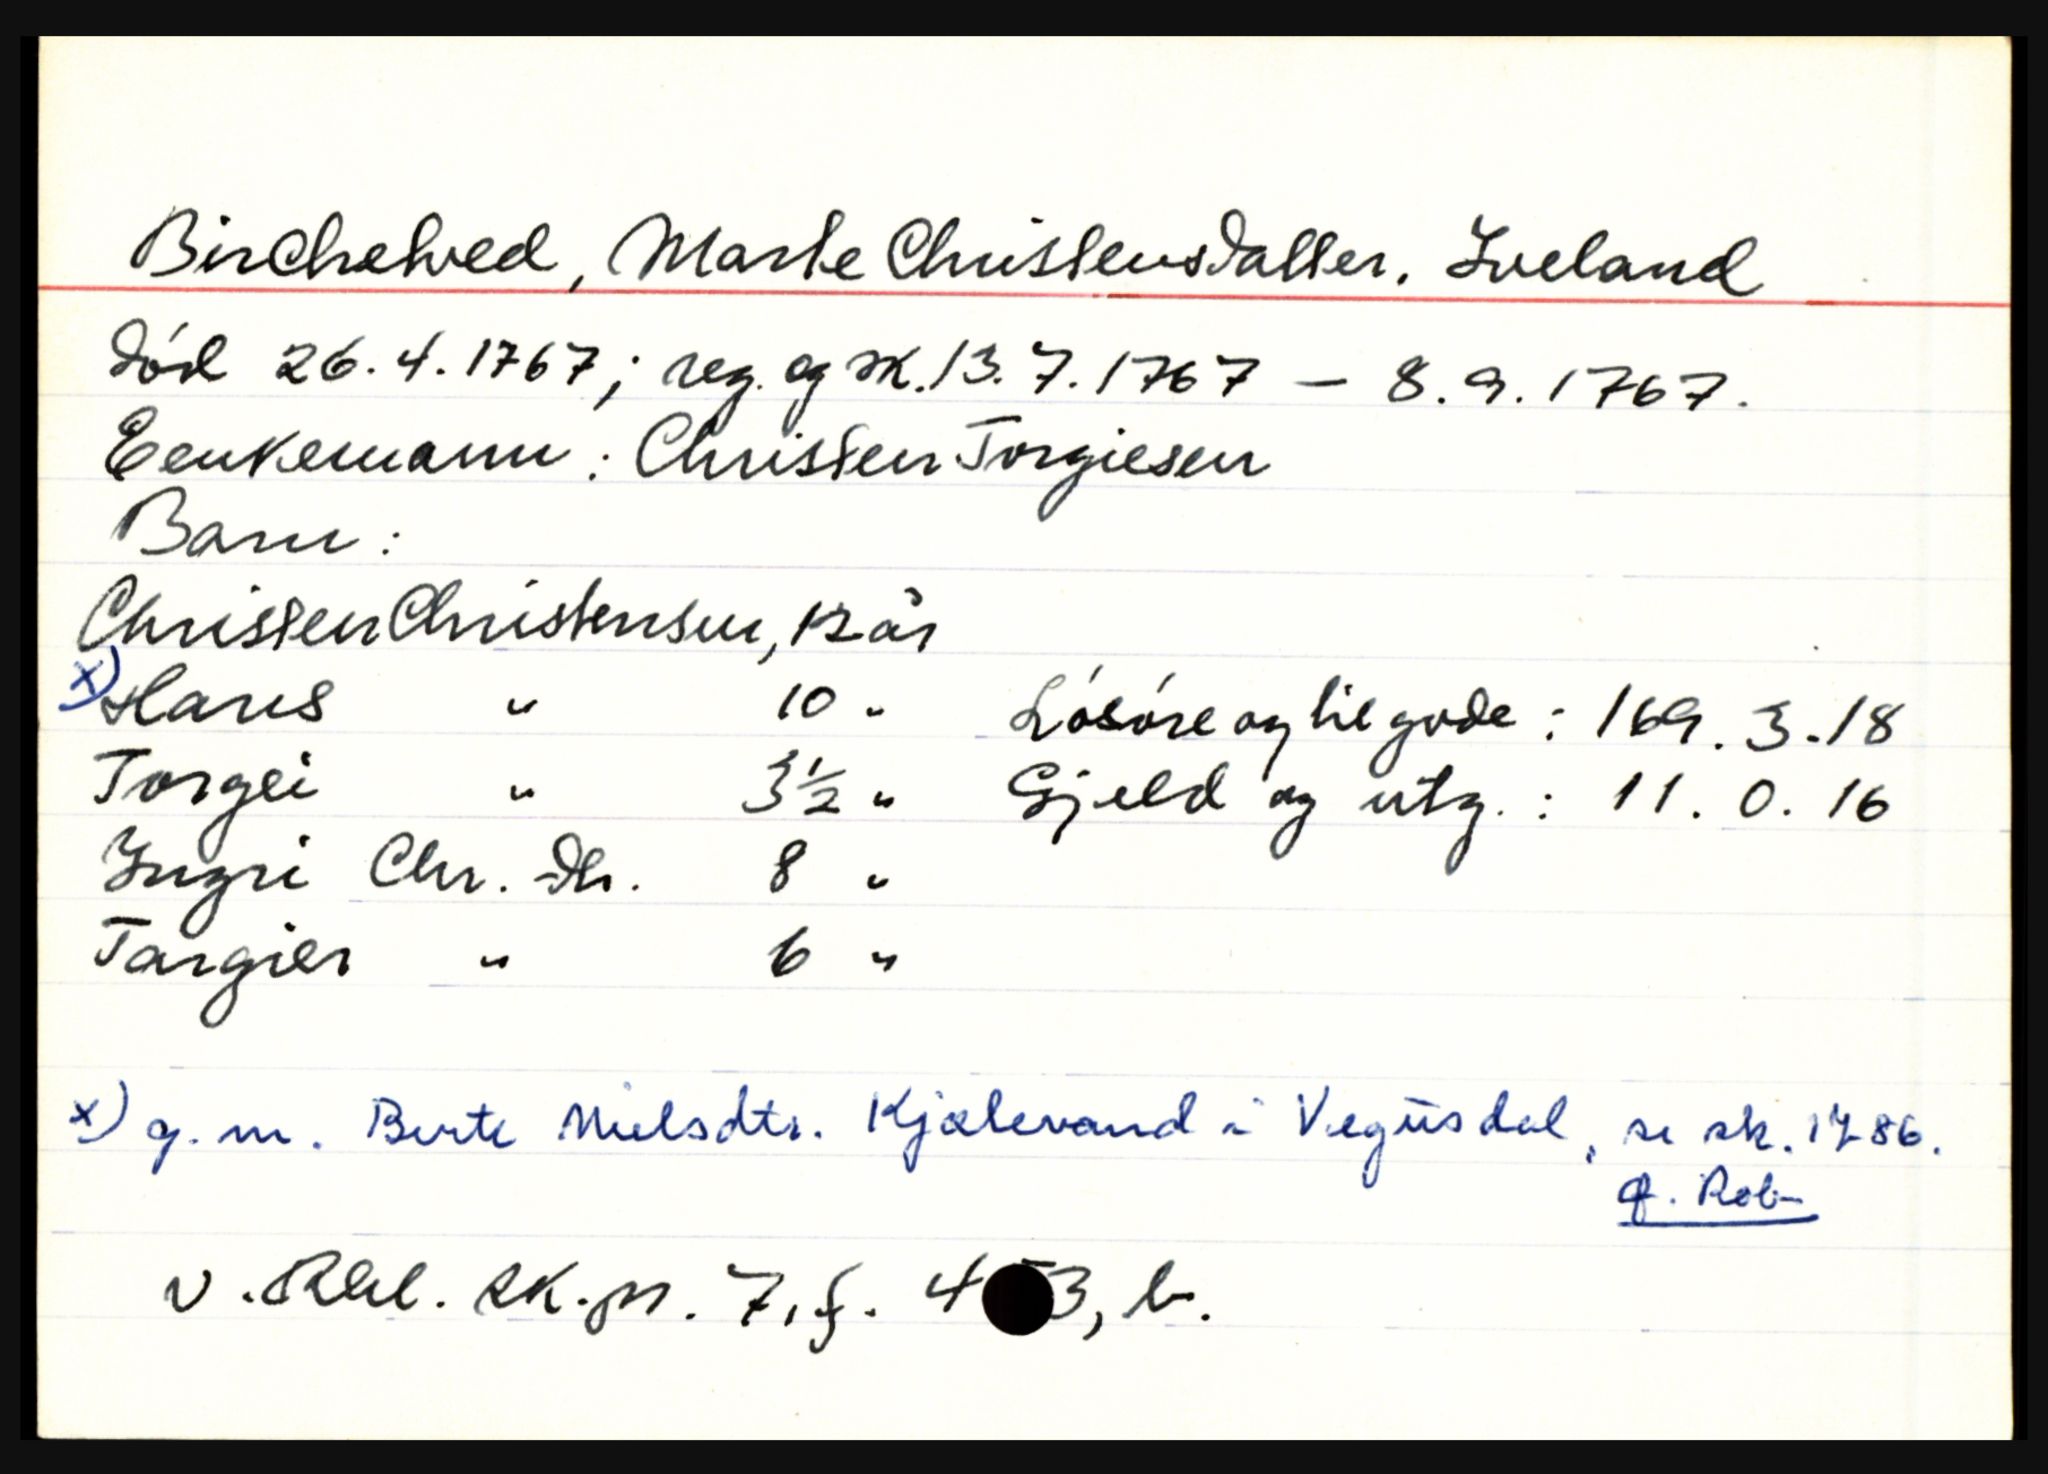 Birchetved, Marte Christensdatter. Iveland
død 26.4.1767; reg. og sk. 13.7.1767 – 8.9.1767.
Eenkemann: Christen Torgiesen
Barn:
Christen Christensen, 12 år
x) Hans " 10 " Løsøre og tilgode: 169.3.18
Torgei " 3½ " Gjeld og utg.: 11.0.16
Ingri Chr. dtr. 8 "
Targier " 6 "
x) g.m. Berte Nielsdtr. Kjetevand i Vegusdal, se sk. 1786.
v. Rbl. sk.pr. 7, f. 3, b.